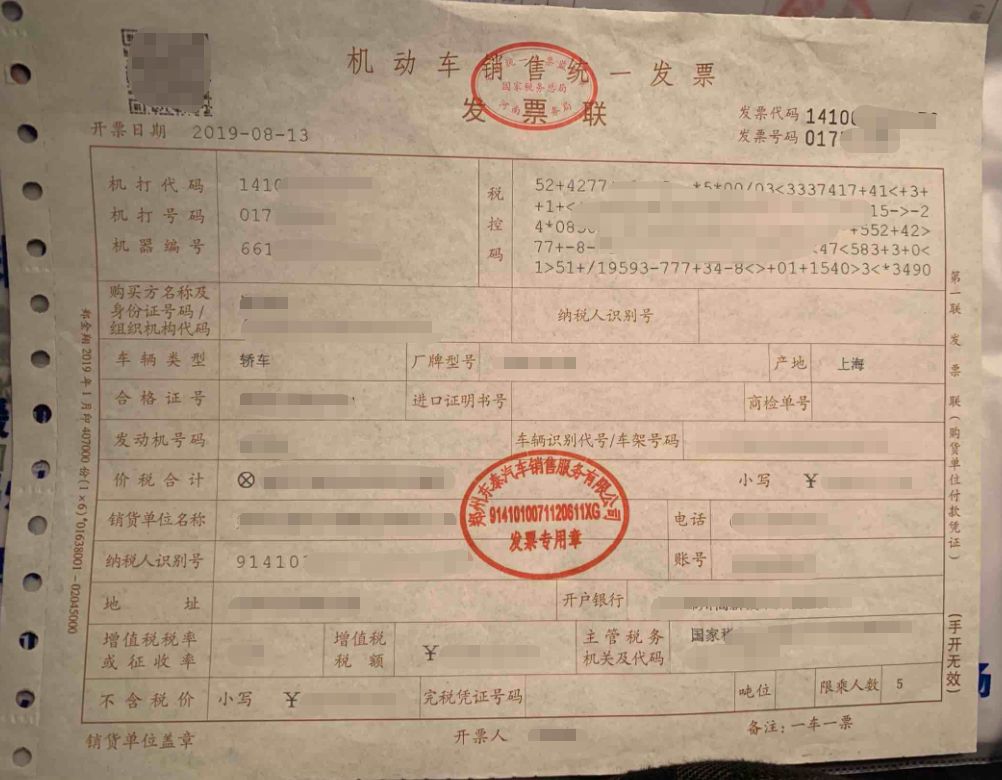 机动车销售统一发票
发票联
国家税务总局
开票日期 2019-08-13
发票代码 1410
发票号码 017
机打代码 1410
机打号码 017
机器编号 661
税控码
52+4277 *5*00/03<3337417+41<+3+
+1+< 15->-2
4*085 +552+42>
77+-8- <47<583+3+0<
1>51+/19593-777+34-8<>+01+1540>3<*3490
购买方名称及
身份证号码/
组织机构代码
纳税人识别号
车辆类型 轿车 厂牌型号 产地 上海
合格证号 进口证明书号 商检单号
发动机号码 车辆识别代号/车架号码
价税合计 ⊗ 小写 ¥
销货单位名称 电话
纳税人识别号 914101 账号
地址 开户银行
增值税税率
或征收率
增值税
税额 ¥
主管税务
机关及代码
国家税
不含税价 小写 ¥ 完税凭证号码 吨位 限乘人数 5
销货单位盖章 开票人 备注:一车一票
郑州东泰汽车销售服务有限公司
9141010071120611XG
发票专用章
第一联 发票联(购货单位付款凭证)
(手开无效)
2019年1月印407000份(1×6)*01638001-02045000